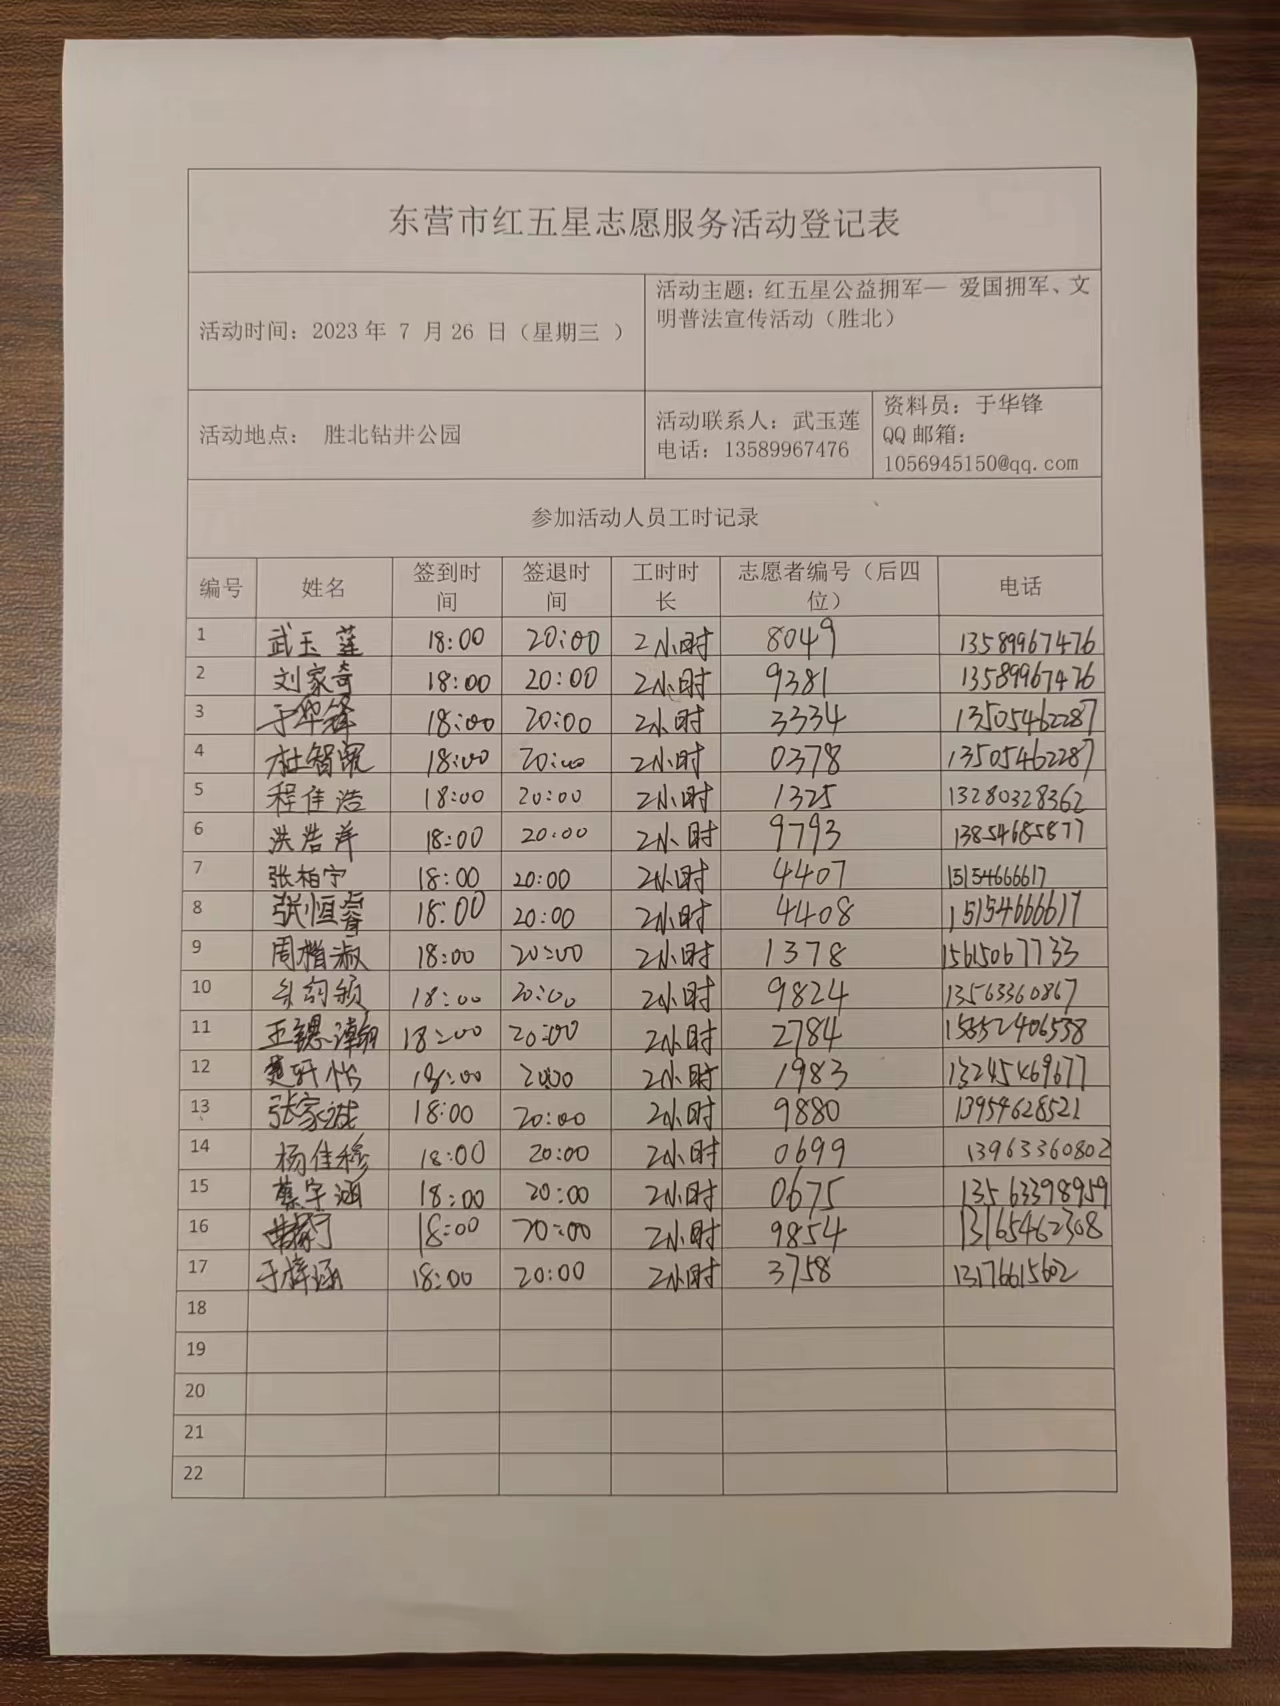 东营市红五星志愿服务活动登记表
活动时间：2023年 7 月26 日（星期三 ）
活动主题：红五星公益拥军— 爱国拥军、文
明普法宣传活动（胜北）
活动地点： 胜北钻井公园
活动联系人：武玉莲
电话：13589967476
资料员：于华锋
QQ邮箱：
1056945150@qq.com
参加活动人员工时记录
编号 姓名 签到时间 签退时间 工时时长 志愿者编号（后四位） 电话
1 武玉莲 18:00 20:00 2小时 8049 13589967476
2 刘家奇 18:00 20:00 2小时 9381 13589967476
3 于华锋 18:00 20:00 2小时 3334 13505462287
4 杜智 18:00 20:00 2小时 0378 13505462287
5 程佳浩 18:00 20:00 2小时 1325 13280328362
6 洪浩洋 18:00 20:00 2小时 9793 13854685877
7 张柏宁 18:00 20:00 2小时 4407 15154666617
8 张恒睿 18:00 20:00 2小时 4408 15154666617
9 周楷淑 18:00 20:00 2小时 1378 15615067733
10 18:00 20:00 2小时 9824 13563360867
11 王 18:00 20:00 2小时 2784 15552406538
12 轩怡 18:00 20:00 2小时 1983 13245469677
13 张家诚 18:00 20:00 2小时 9880 13954628521
14 杨佳穆 18:00 20:00 2小时 0699 13963360802
15 蔡宇涵 18:00 20:00 2小时 0675 13563398959
16 18:00 20:00 2小时 9854 13165462308
17 于梓涵 18:00 20:00 2小时 3758 13176615602
18
19
20
21
22